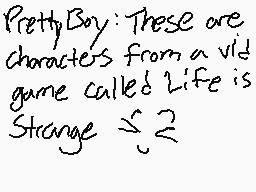 PrettyBoy: These are
characters from a vid
game called Life is
Strange